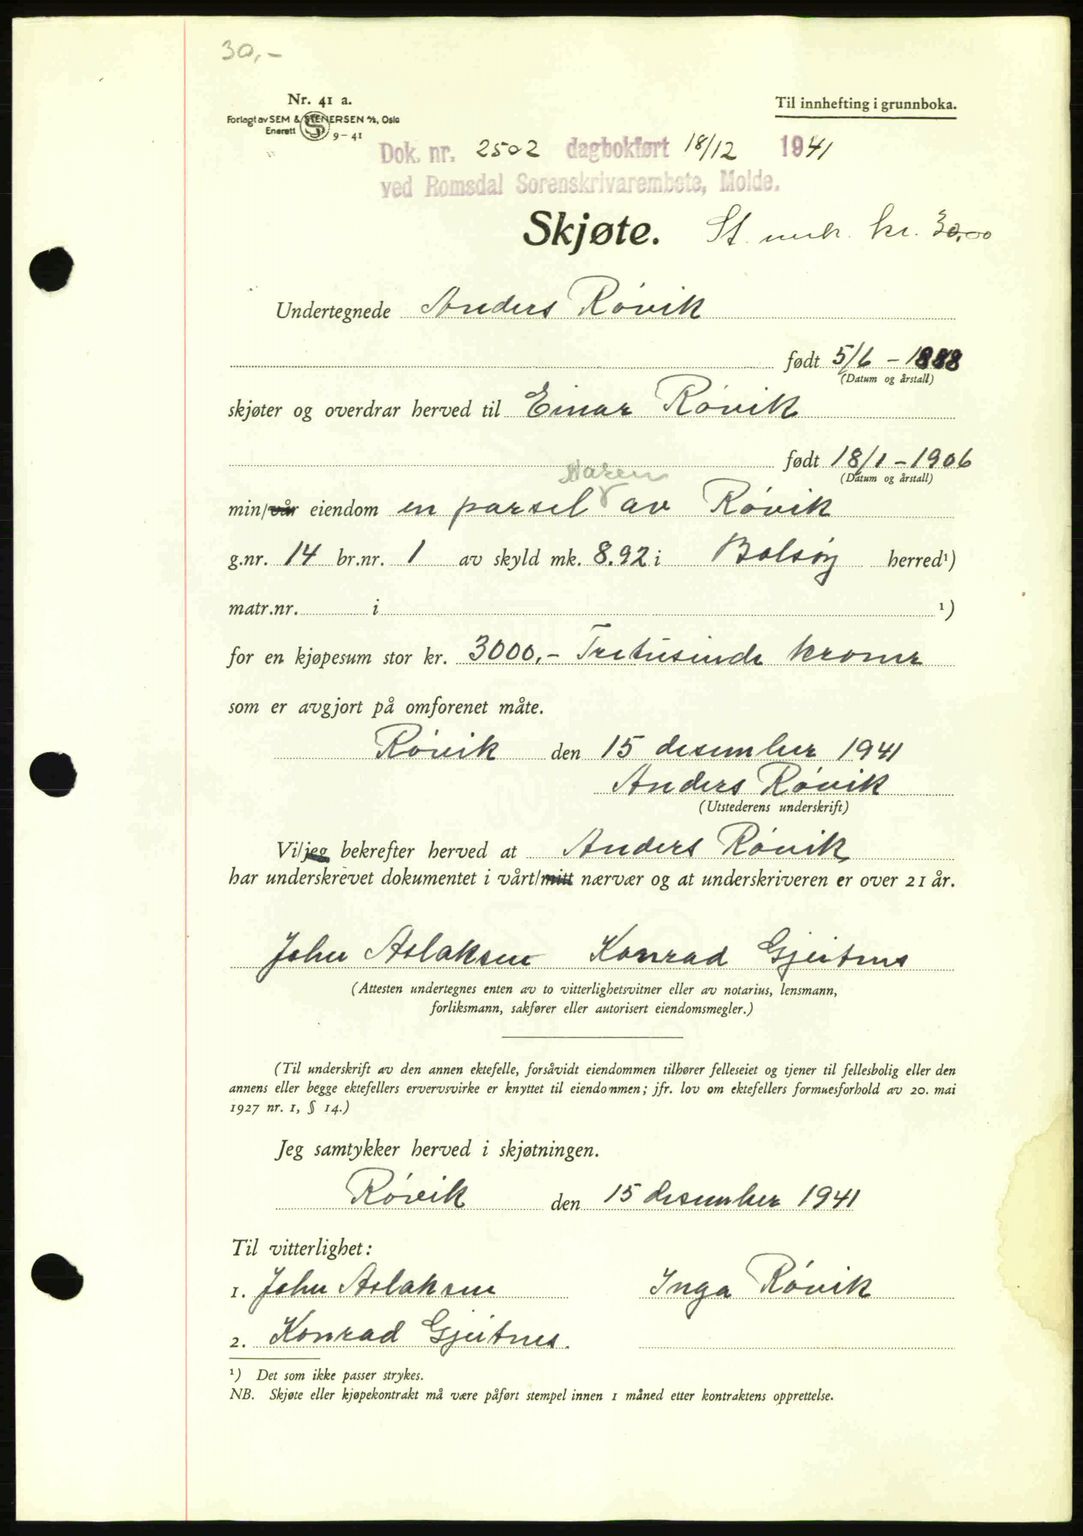 30,-
Nr. 41 a.
Til innhefting i grunnboka.
Forlagt av SEM & STENERSEN A/S, Oslo
Enerett 9-41
Dok. nr. 2502 dagbokført 18/12 1941
ved Romsdal Sorenskrivarembete, Molde.
Skjøte. St. merk. kr. 30,00
Undertegnede Anders Røvik
født 5/6 - 1888
(Datum og årstall)
skjøter og overdrar herved til Einar Røvik
født 18/1 - 1906
(Datum og årstall)
Haren
min/vår eiendom en parsel av Røvik
g.nr. 14 br.nr. 1 av skyld mk. 8.92 i Bolsøy herred¹)
matr.nr. i ¹)
for en kjøpesum stor kr. 3000,- Tretusinde kroner
som er avgjort på omforenet måte.
Røvik den 15 desember 1941
Anders Røvik
(Utstederens underskrift)
Vi/jeg bekrefter herved at Anders Røvik
har underskrevet dokumentet i vårt/mitt nærvær og at underskriveren er over 21 år.
John Aslaksen Konrad Gjeitnes
(Attesten undertegnes enten av to vitterlighetsvitner eller av notarius, lensmann,
forliksmann, sakfører eller autorisert eiendomsmegler.)
(Til underskrift av den annen ektefelle, forsåvidt eiendommen tilhører felleseiet og tjener til fellesbolig eller den
annens eller begge ektefellers ervervsvirke er knyttet til eiendommen; jfr. lov om ektefellers formuesforhold av 20. mai
1927 nr. 1, § 14.)
Jeg samtykker herved i skjøtningen.
Røvik den 15 desember 1941
Til vitterlighet:
1. John Aslaksen Inga Røvik
2. Konrad Gjeitnes.
¹) Det som ikke passer strykes.
NB. Skjøte eller kjøpekontrakt må være påført stempel innen 1 måned etter kontraktens opprettelse.